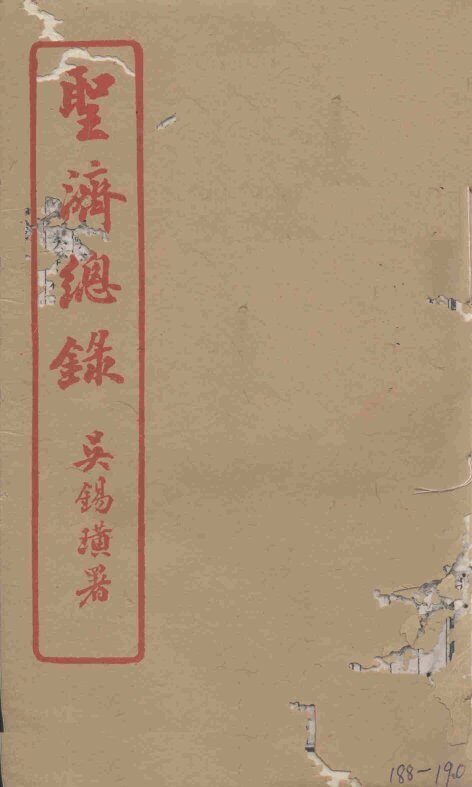 聖濟總錄
吳錫璜署
188-190